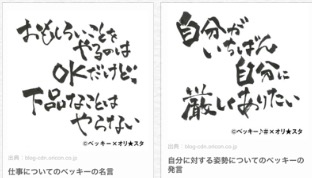 おもしろいことを
やるのは
OKだけど、
下品なことは
やらない
©ベッキー×オリ★スタ
出典：blog-cdn.oricon.co.jp
仕事についてのベッキーの名言
自分が
いちばん
自分に
厳しくありたい
©ベッキー♪♯×オリ★スタ
出典：blog-cdn.oricon.co.jp
自分に対する姿勢についてのベッキーの
発言